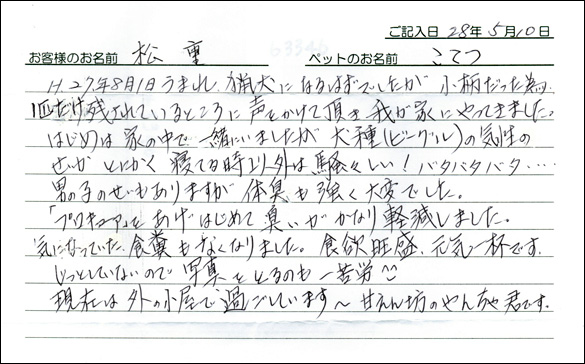 ご記入日 28年5月10日
お客様のお名前 松重 ペットのお名前 こてつ
H.27年8月1日うまれ、猟犬になるはずでしたが 小柄だった為、
1匹だけ残されているところに 声をかけて頂き 我が家にやってきました。
はじめは 家の中で 一緒にいましたが 犬種(ビーグル)の気性の
せいか とにかく 寝てる時以外は 騒々しい！バタバタバタ・・・・
男の子のせいもありますが 体臭も強く 大変でした。
「プロキュア」を あげはじめて 臭いが かなり 軽減しました。
気になっていた 食糞もなくなりました。食欲旺盛、元気一杯です。
じっとしていないので 写真をとるのも 一苦労
現在は 外の小屋で 過ごしています〜 甘えん坊の やんちゃ君です。